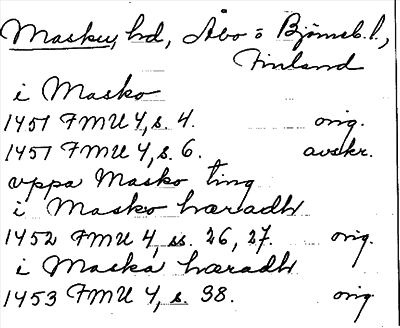 Masku, hd, Åbo o Björneb. l.,
Finland
i Masko
1451 FMU 4, s. 4. orig.
1451 FMU 4, s. 6. avskr.
vppa Masko ting
i Masko hæradh
1452 FMU 4, ss. 26, 27. orig.
i Maska hæradh
1453 FMU 4, s. 38. orig